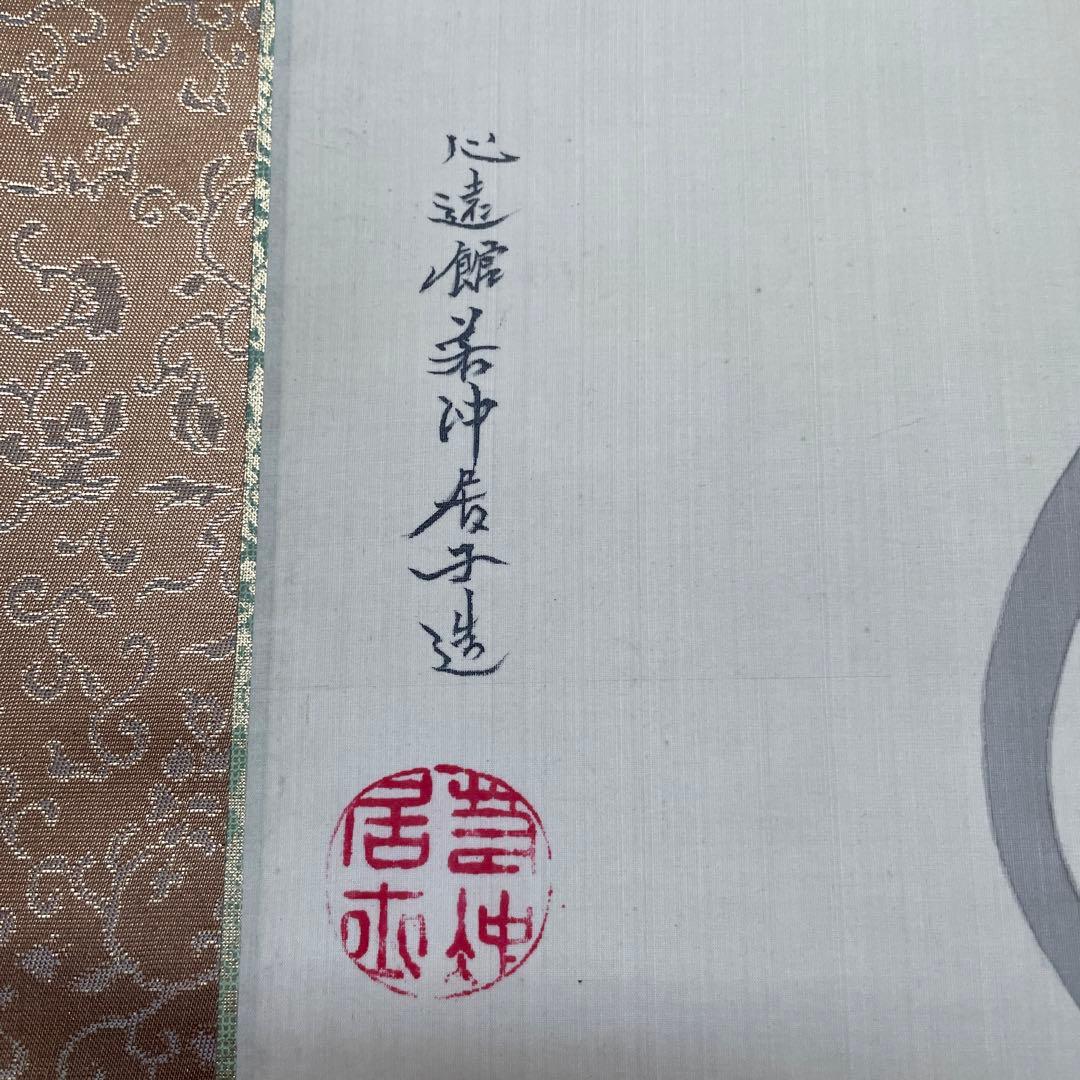 心遠館若冲居子造
若冲居士